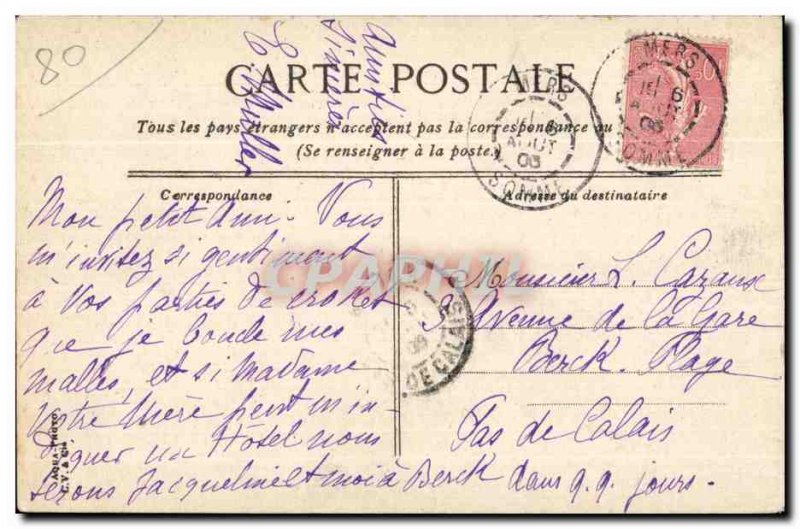 80
Amitiés
Sincères
E. Muller
CARTE POSTALE
Tous les pays étrangers n'acceptent pas la correspondance au
(Se renseigner à la poste.)
MERS
6
AOUT
SOMME
MERS
6
SOMME
Correspondance
Adresse du destinataire
Mon petit Ami. Vous
m'invitez si gentiment
à vos parties de croket
que je boucle mes
malles, et si Madame
votre Mère peut m'in-
diquer un Hôtel nous
serons Jacqueline et moi à Berck dans q.q. jours.
Monsieur L. Cazaux
Avenue de la Gare
Berck. Plage
Pas de Calais
DE CALAIS
CPARAMA
AQUA-PHOTO